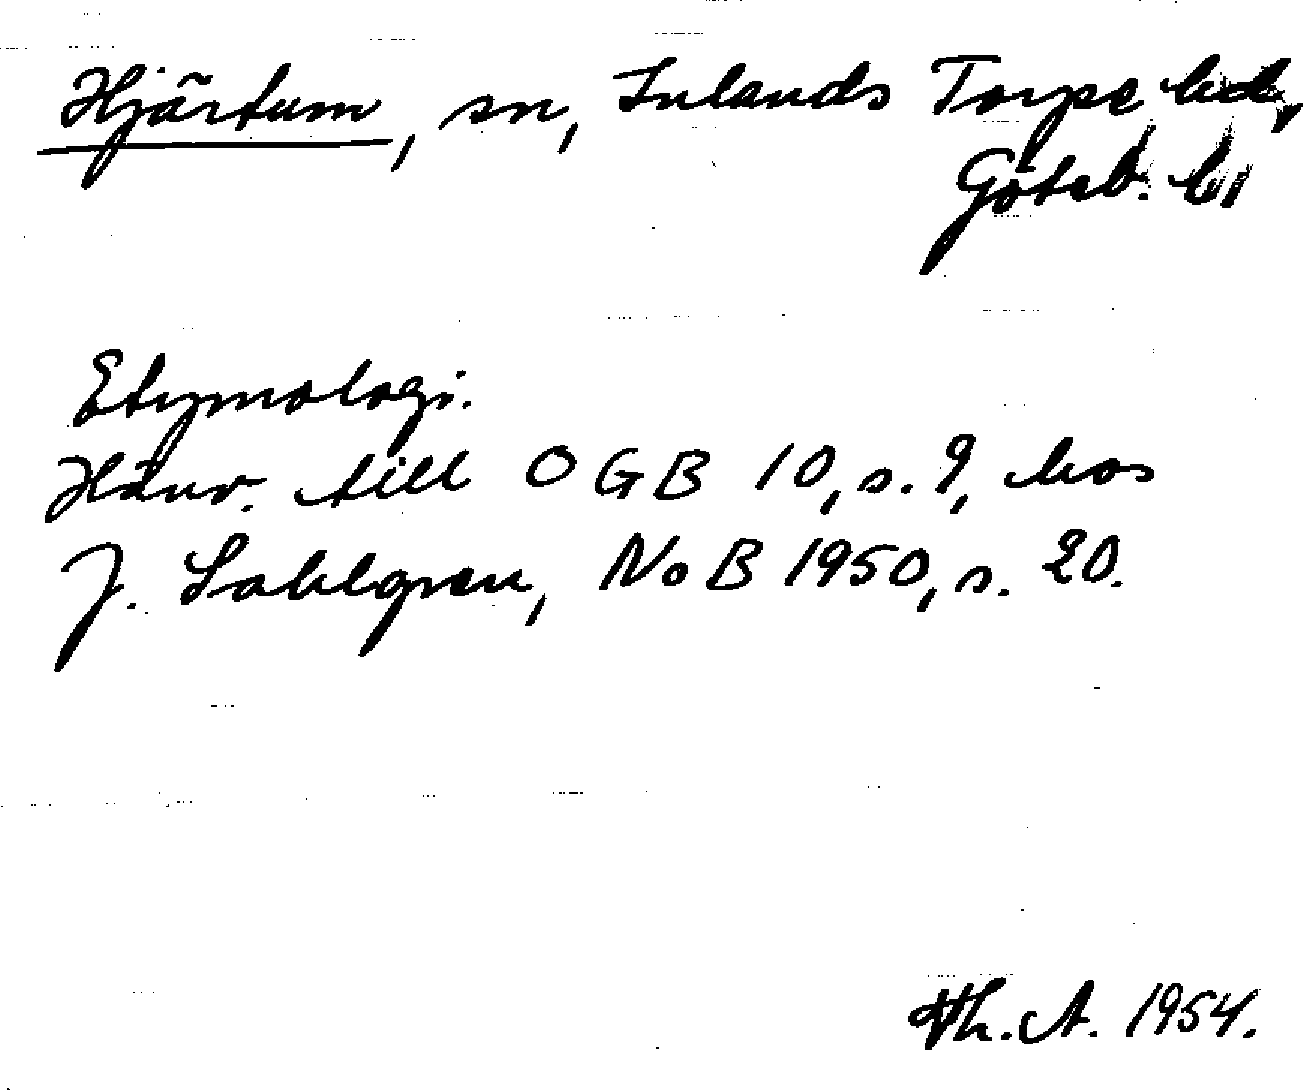 Hjärtum, sn, Inlands Torpe hd,
Göteb. l.
Etymologi.
Hänv. till OGB 10, s. 9, hos
J. Sahlgren, NoB 1950, s. 20.
Th. A. 1954.